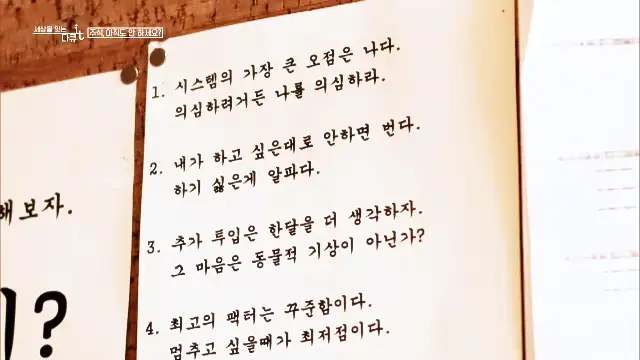 세상을 잇는
다큐it
[주식, 아직도 안 하세요?]
1. 시스템의 가장 큰 오점은 나다.
의심하려거든 나를 의심하라.
2. 내가 하고 싶은대로 안하면 번다.
하기 싫은게 알파다.
3. 추가 투입은 한달을 더 생각하자.
그 마음은 동물적 기상이 아닌가?
4. 최고의 팩터는 꾸준함이다.
멈추고 싶을때가 최저점이다.
해보자.
?